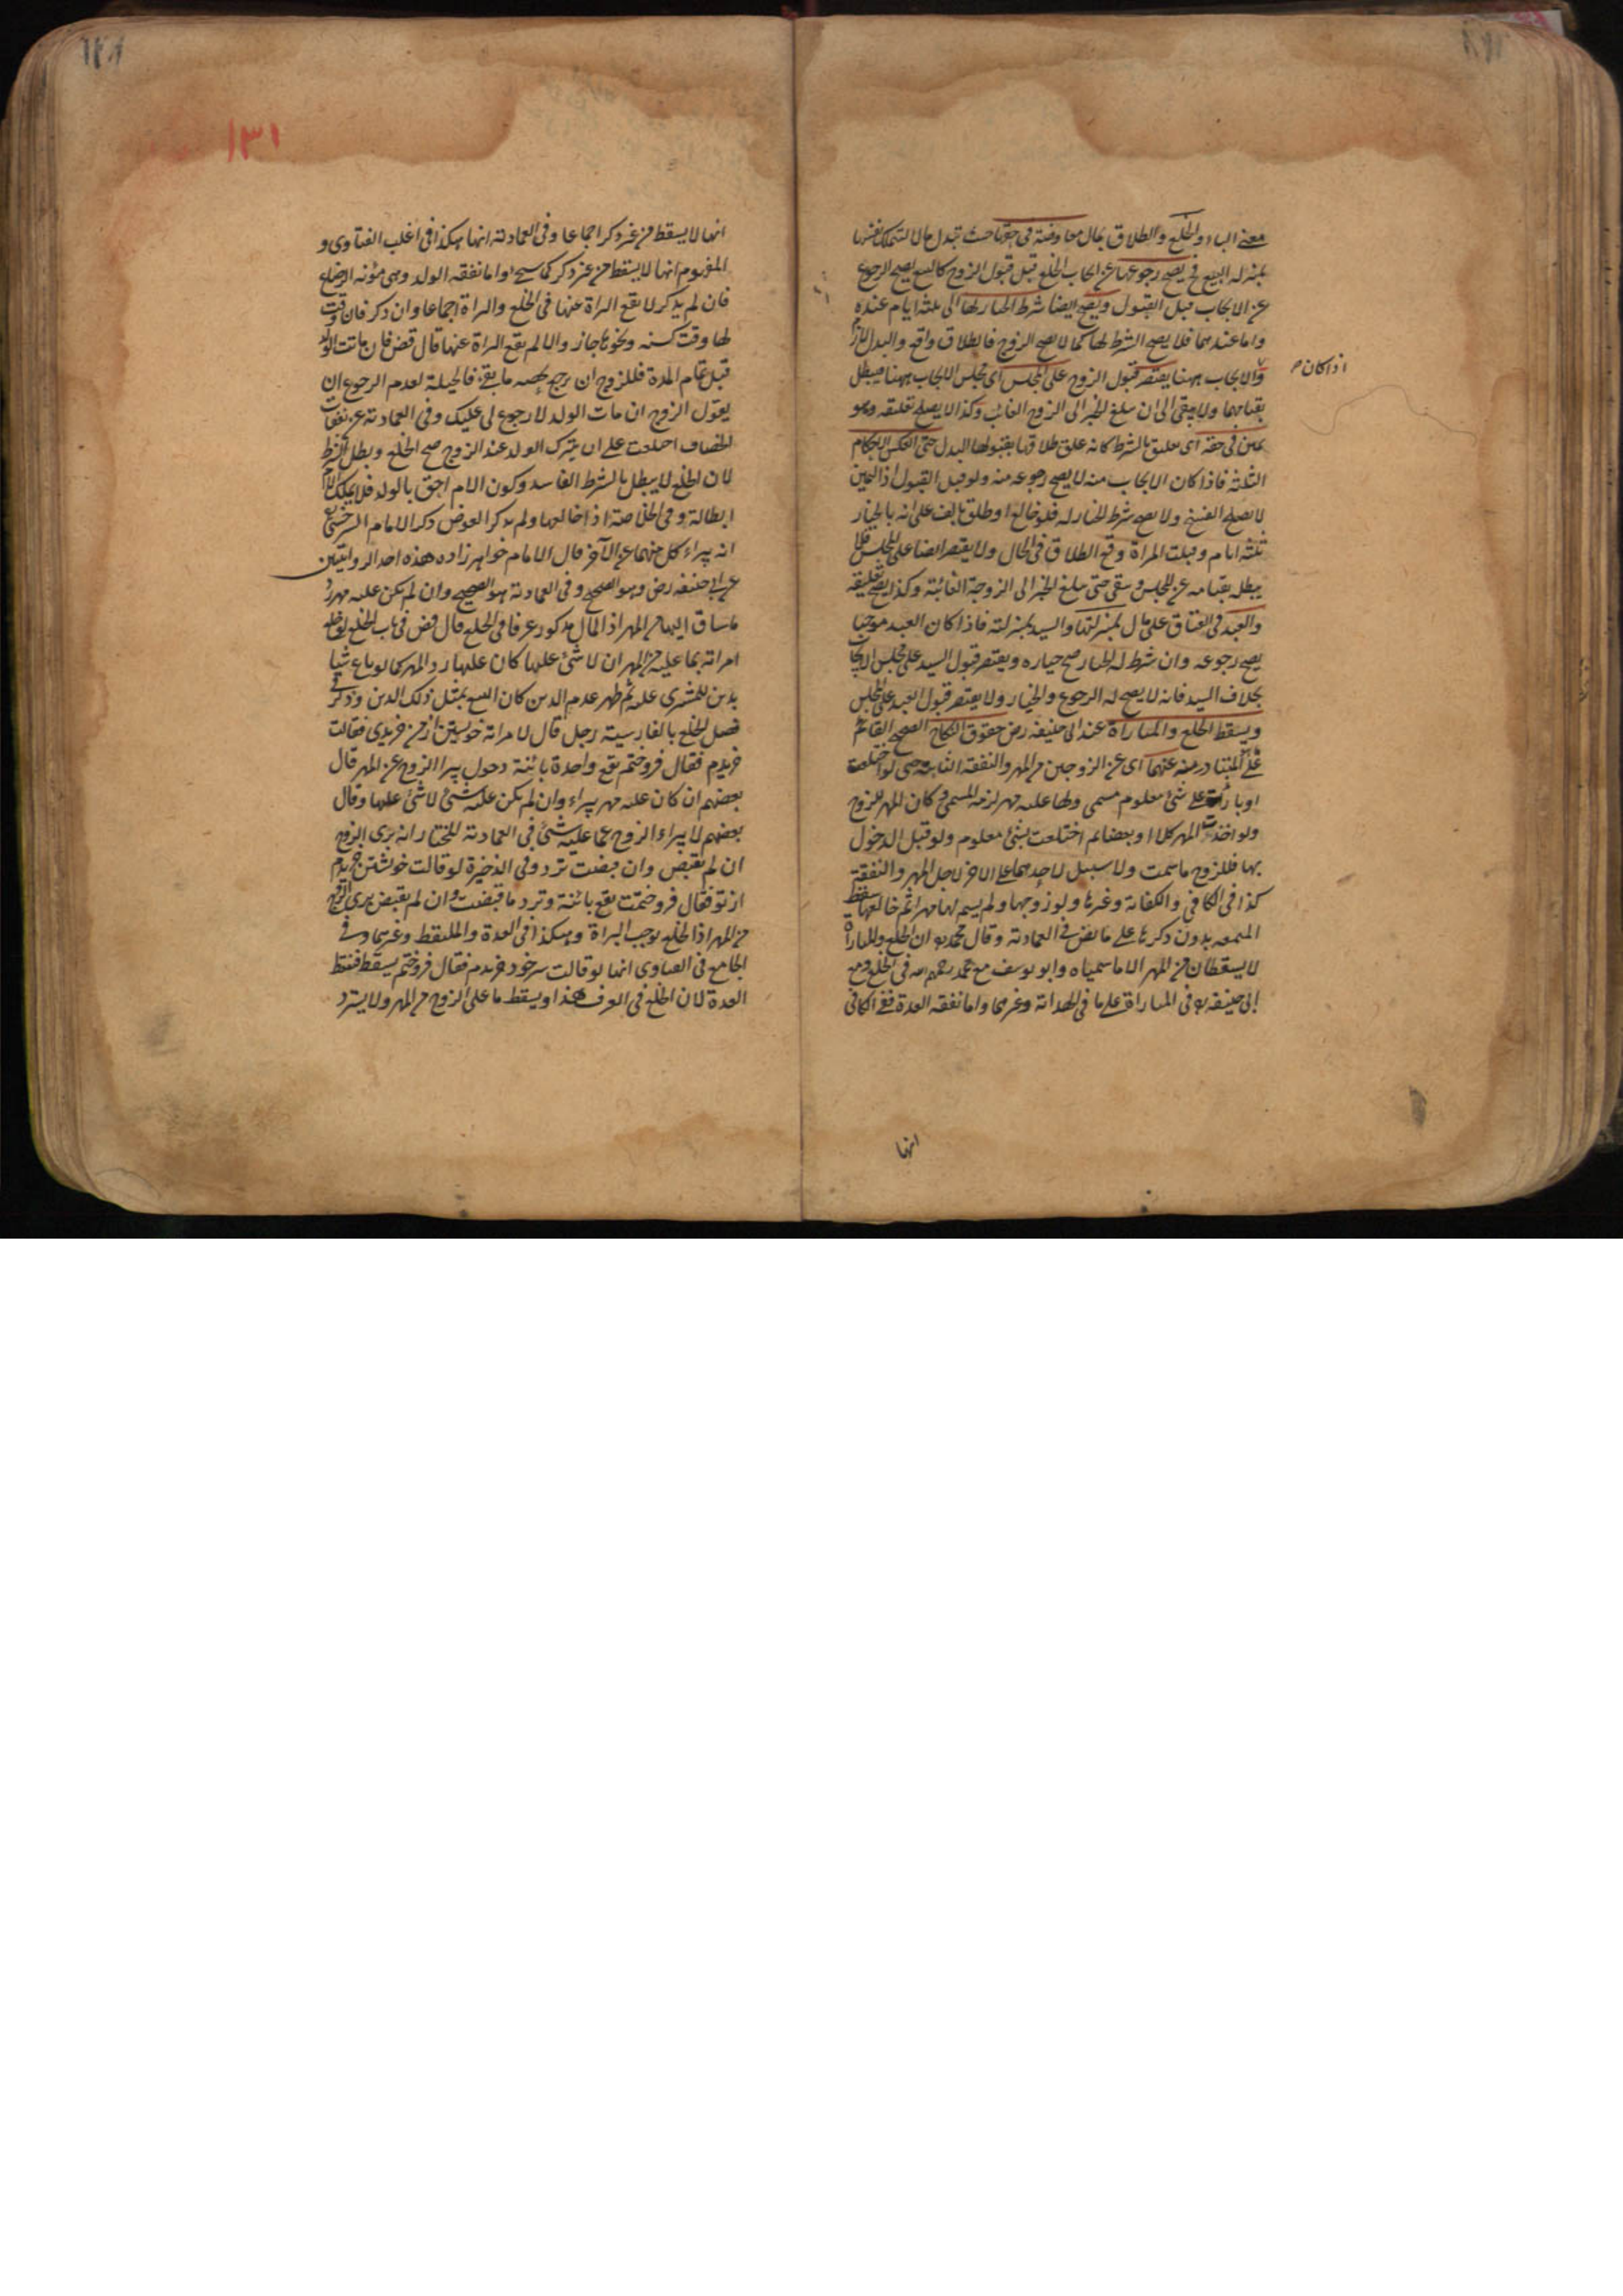 معنى الباء والخلع والطلاق بمال معاوضة فى حقها حيث تبذل مالا لتملك نفسها
بمنزلة البيع فح يصح رجوعها عن ايجاب الخلع قبل قبول الزوج كالبيع يصح الرجوع
عن الايجاب قبل القبول ويصح ايضا شرط الخيار لها الى ثلثة ايام عنده
واما عندهما فلا يصح الشرط لها كما لا يصح للزوج فالطلاق واقع والبدل لازم
والايجاب ههنا يقتصر قبول الزوج على المجلس اى مجلس الايجاب ههنا فيبطل
اذا كان
بقيامهما ولا يبقى الى ان يبلغ الخبر الى الزوج الغائب وكذا لا يصح تعليقه وهو
يمين فى حقه اى تعليق بالشرط كانه علق طلاقها بقبولها البدل حتى انعكس الاحكام
الثلثة فاذا كان الايجاب منه لا يصح رجوعه منه ولو قبل القبول اذ اليمين
لا يصلح الفسخ ولا يصح شرط الخيار له فلو خالع او طلق بالف على انه بالخيار
ثلثة ايام وقبلت المراة وقع الطلاق فى الحال ولا يقتصر ايضا على المجلس فلا
يبطل بقيامه عن المجلس ويبقى حتى يبلغ الخبر الى الزوجة الغائبة وكذا يصح تعليقه
والعبد فى العتاق على مال بمنزلتها والسيد بمنزلته فاذا كان العبد موجبا
يصح رجوعه وان شرط له الخيار صح خياره ويقتصر قبول السيد على مجلس الايجاب
بخلاف السيد فانه لا يصح له الرجوع والخيار ولا يقتصر قبول العبد على المجلس
ويسقط الخلع والمباراة عند ابى حنيفة رض حقوق النكاح الصحيح القائم
على المتبادر منه عنهما اى عن الزوجين من المهر والنفقة حتى لو اختلعت
او بارئت على شئ معلوم مسمى ولها عليه مهر لزمه المسمى وكان المهر للزوج
ولو اخذت المهر كلا او بعضا ثم اختلعت بشئ معلوم ولو قبل الدخول
بها فللزوج ما سمت ولا سبيل لاحدهما على الاخر لاجل المهر والنفقة
كذا فى الكافى والكفاية وغيرها ولو زوجها ولم يسم لها مهرا ثم خالعها سقط
المتعة بدون ذكرها على ما نص فى العمادية وقال محمد ره ان الخلع والمباراة
لا يسقطان من المهر الا ما سمياه وابو يوسف مع محمد رحمهم الله فى الخلع ومع
ابى حنيفة ره فى المباراة على ما فى الهداية وغيرها واما نفقة العدة ففى الكافى
انها
١٣١
انها لا يسقط من غير ذكر اجماعا وفى العمادية انها هكذا فى اغلب الفتاوى و
المفهوم انها لا يسقط من غير ذكر كما سيجئ واما نفقة الولد وهى مؤنة الرضاع
فان لم يذكر لا يقع البراة عنها فى الخلع والبراة اجماعا وان ذكر فان وقت
لها وقت كسنة ونحوها جاز والا لم يقع البراة عنها قال قض فان مات الولد
قبل تمام المدة فللزوج ان يرجع بحصة ما بقى فالحيلة لعدم الرجوع ان
يقول الزوج ان مات الولد لا رجوع لى عليك وفى العمادية عن نفقات
الخصاف اختلعت على ان يترك الولد عند الزوج صح الخلع وبطل الشرط
لان الخلع لا يبطل بالشرط الفاسد وكون الام احق بالولد فلا يملك الام
ابطاله وفى الخلاصة اذا خالعها ولم يذكر العوض ذكر الامام السرخسى
انه يبراء كل منهما عن الآخر قال الامام خواهرزاده هذه احد الروايتين
عن ابى حنيفة رض وهو الصحيح وفى العمادية هو الصحيح وان لم يكن عليه مهر رد
ما ساق اليها من المهر اذ المال مذكور عرفا فى الخلع قال قض فى باب الخلع لو خالع
امراته بما عليه من المهر ان لا شئ عليها كان عليها رد المهر كما لو باع شيا
بدين للمشترى عليه ثم ظهر عدم الدين كان البيع بمثل ذلك الدين وذكر فى
فصل الخلع بالفارسية رجل قال لامراته خويشتن از من خريدى فقالت
خريدم فقال فروختم يقع واحدة بائنة دخول يبرا الزوج عن المهر قال
بعضهم ان كان عليه مهر يبراء وان لم يكن عليه شئ لا شئ عليها وقال
بعضهم لا يبراء الزوج عما عليه شئ فى العمادية المختار انه برى الزوج
ان لم تقبض وان قبضت ترد وفى الذخيرة لو قالت خويشتن خريدم
از تو فقال فروختمت يقع بائنة وترد ما قبضت وان لم يقبض برى الزوج
من المهر اذ الخلع يوجب البراة وهكذا فى العدة والملتقط وغيرهما وفى
الجامع فى الفتاوى انها لو قالت سر خود خريدم فقال فروختم يسقط نفقة
العدة لان الخلع فى العرف هكذا ويسقط ما على الزوج من المهر ولا يسترد